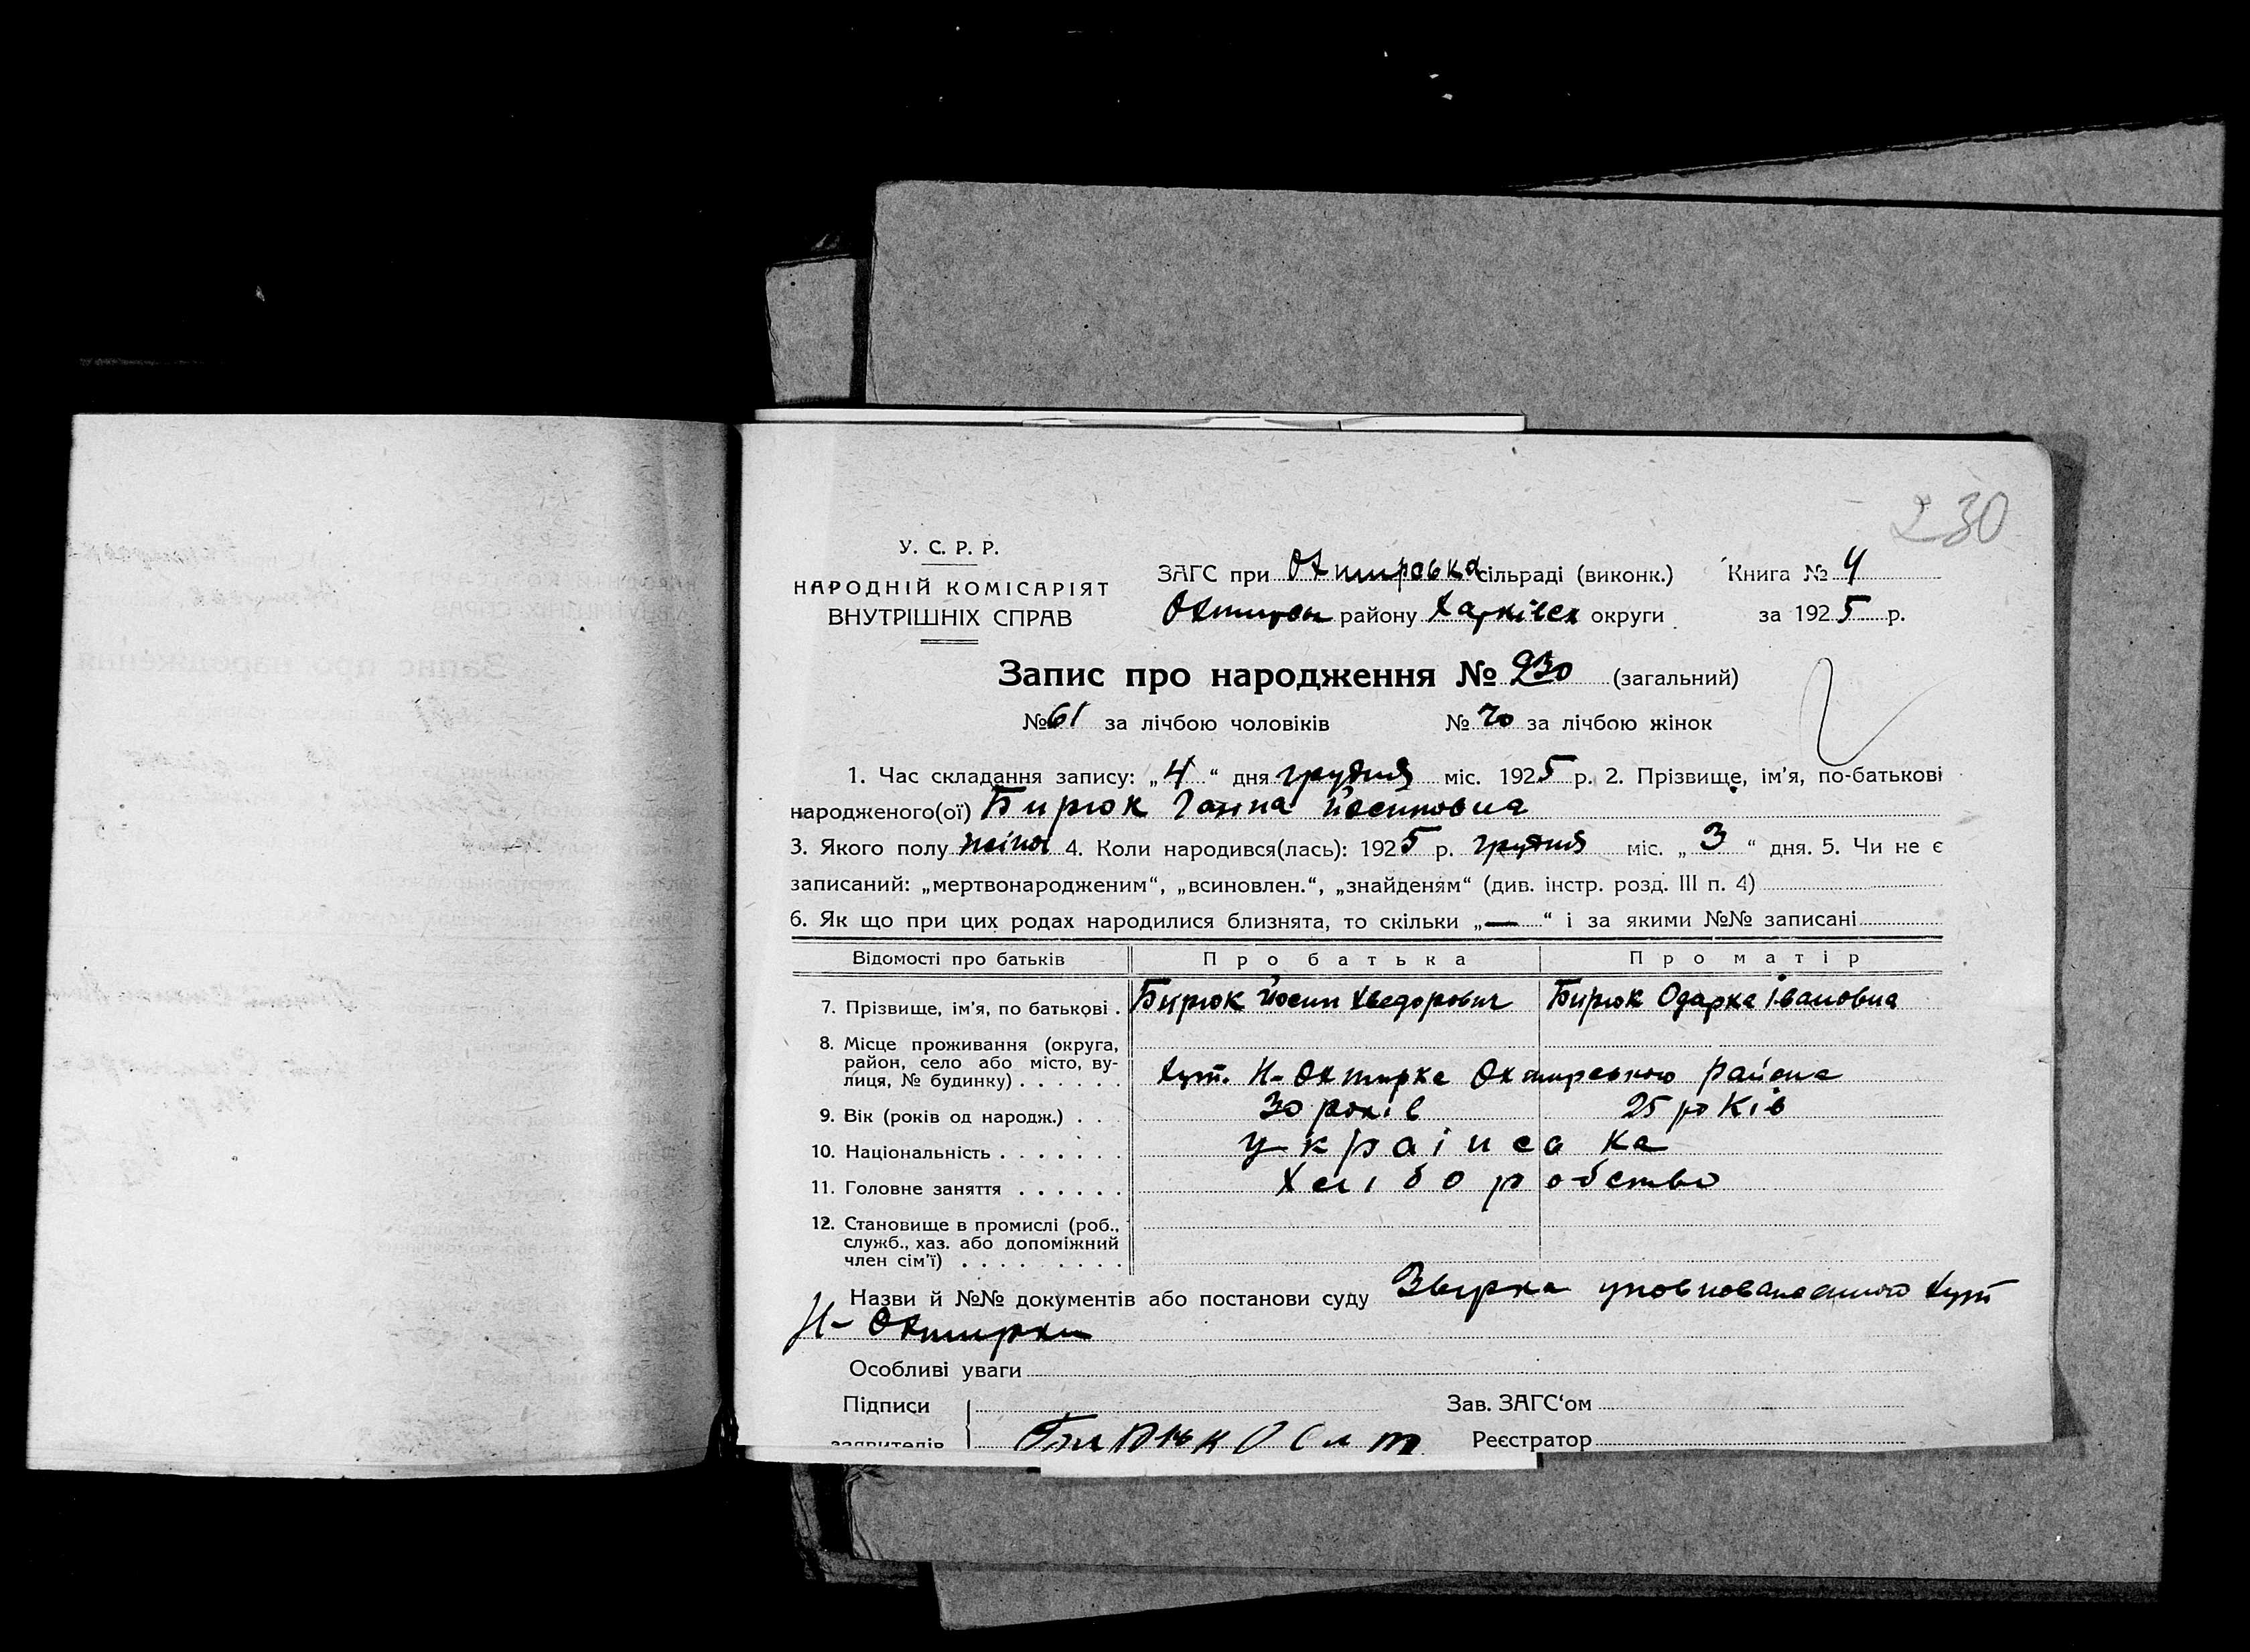 230
У. С. Р. Р.
НАРОДНІЙ КОМІСАРІЯТ
ВНУТРІШНІХ СПРАВ
ЗАГС при Охтирська сільраді (виконк.) Книга № 4
Охтирськ району Харківск округи за 1925 р.
Запис про народження № 230 (загальний)
№ 61 за лічбою чоловіків № 70 за лічбою жінок
1. Час складання запису: „4“ дня грудня міс. 1925 р. 2. Прізвище, ім'я, по-батькові
народженого(ої) Бирюк Ганна Йосиповна
3. Якого полу жіноч 4. Коли народився(лась): 1925 р. грудня міс. „3“ дня. 5. Чи не є
записаний: „мертвонародженим“, „всиновлен.“, „знайденям“ (див. інстр. розд. III п. 4)
6. Як що при цих родах народилися близнята, то скільки „—“ і за якими №№ записані
Відомості про батьків Про батька Про матір
7. Прізвище, ім'я, по батькові . Бирюк Йосип Хведорович Бирюк Одарка Івановна
8. Місце проживання (округа,
район, село або місто, ву-
лиця, № будинку) . . . . . . Хут. Н-Охтирка Охтирського района
9. Вік (років од народж.) . . . 30 років 25 років
10. Національність . . . . . . . українська
11. Головне заняття . . . . . . Хліборобство
12. Становище в промислі (роб.,
служб., хаз. або допоміжний
член сім'ї) . . . . . . . . .
Назви й №№ документів або постанови суду уповноваженного хут
Н-Охтирки
Особливі уваги
Підписи Зав. ЗАГС'ом
заявителів Реєстратор